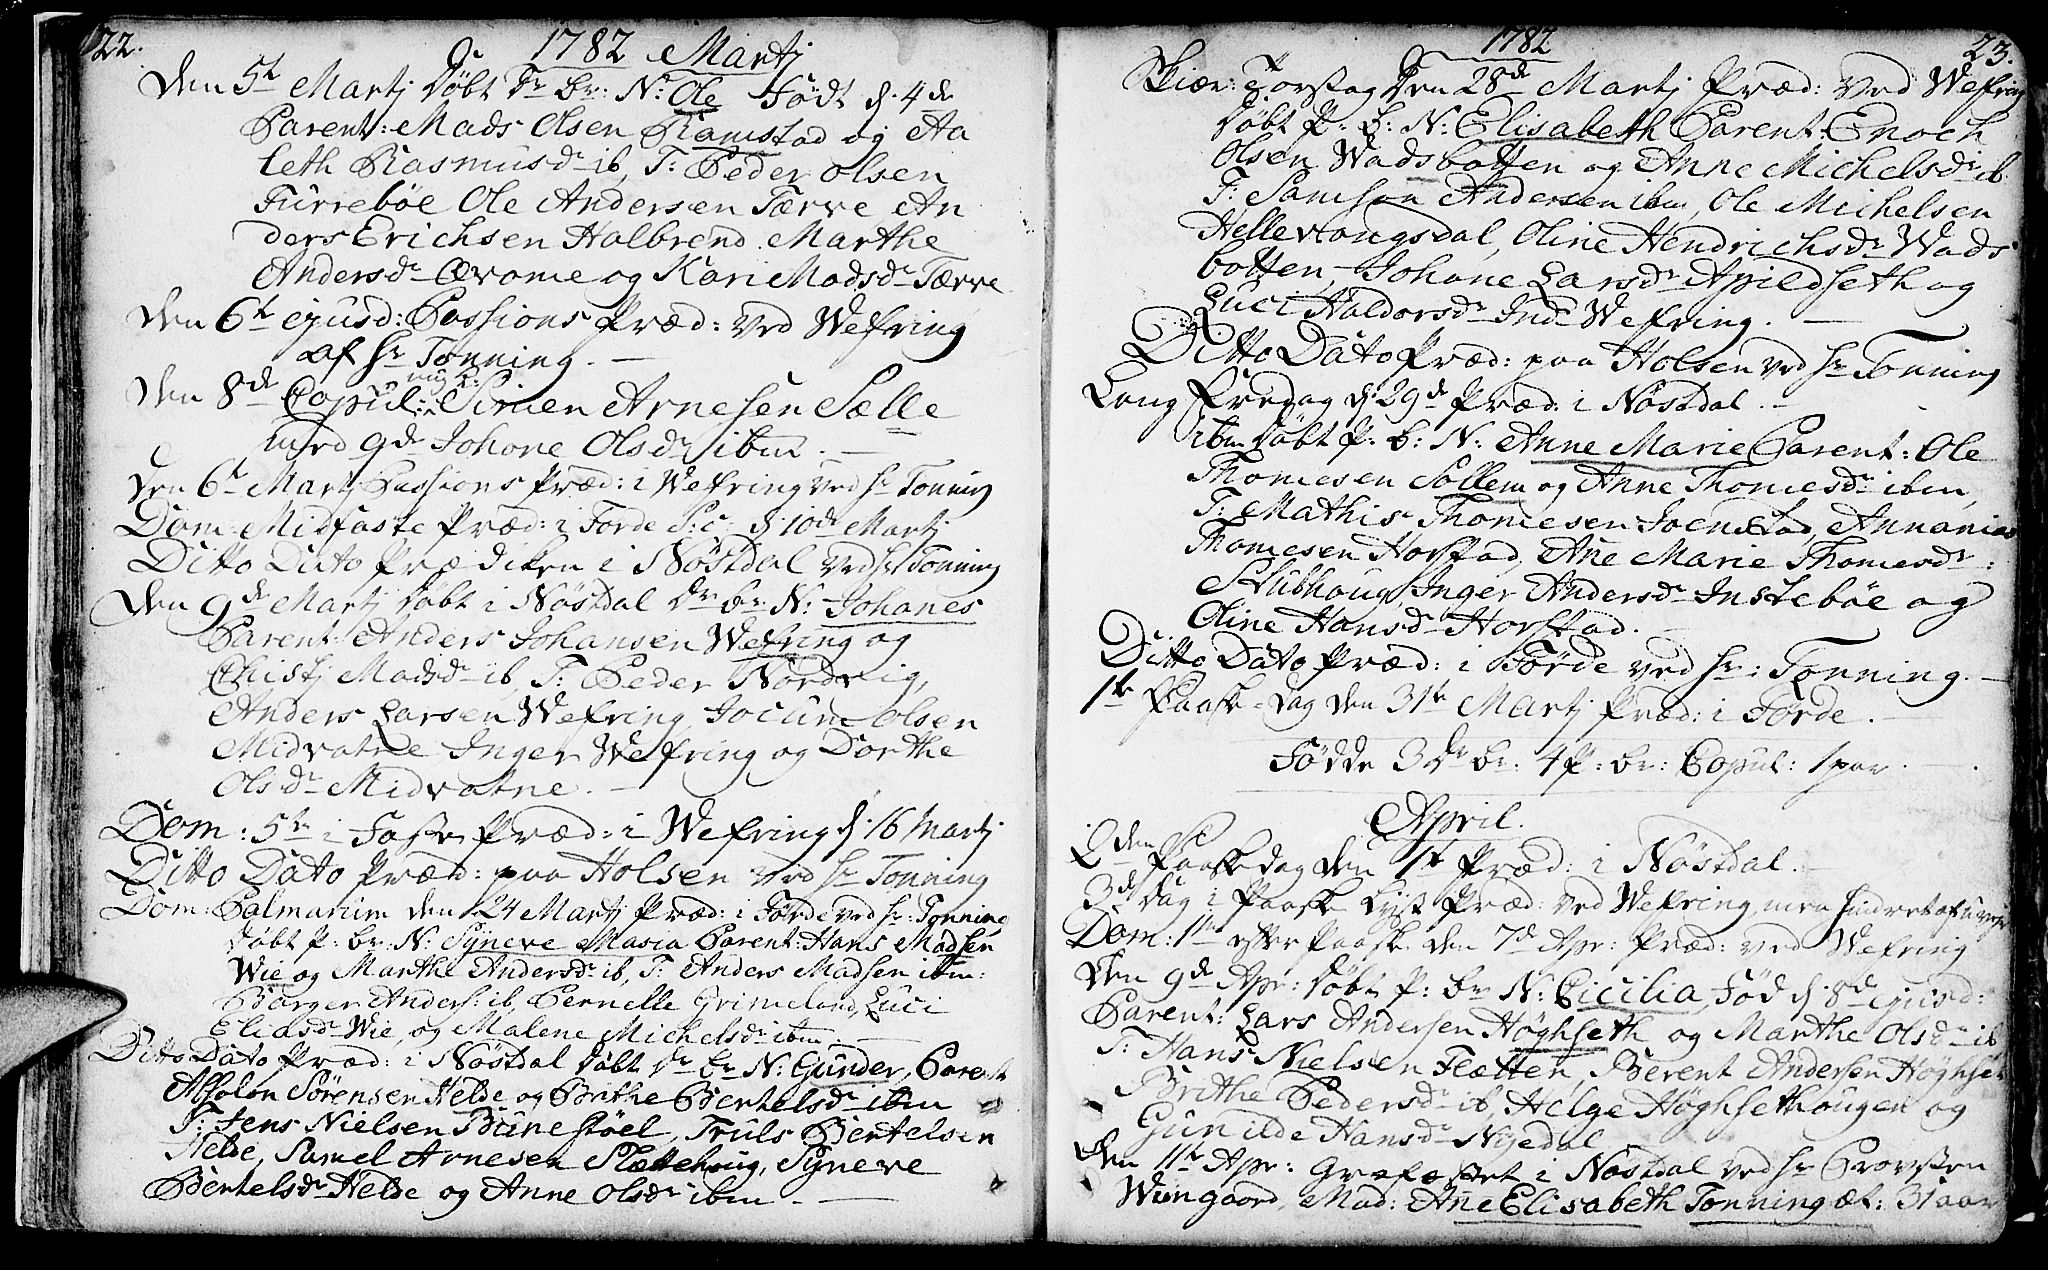 22.
1782 Martj
Den 5t Martj Døbt Dr. br: N: Ole Født d. 4de
Parent: Mads Olsen Ramstad og Aa
leth Rasmusdr ib, T: Peder Olsen
Furrebøe Ole Andersen Tærve An
ders Erichsen Halbrend. Marthe
Andersdr Qvame og Kari Madsdr Tærve
Den 6t ejusd: Passions Præd: ved Wefring
af Hr Tonning.
Den 8de Copul: Simen Arnesen Sælle
med Johane Olsdr ibm.
Den 6te Martj Passions Præd: i Wefring ved Hr Tonning
Dom: Midfaste Præd: i Førde d. 10de Martj
Ditto Dato Prædiken i Nøstdal ved Hr Tonning
Den 9de Martj Døbt i Nøstdal Dr br N: Johanes
Parent: Anders Johansen Wefring og
Christj Madsdr ib, T: Peder Nordvig,
Anders Larsen Wefring, Jocum Olsen
Midvatne Inger Wefring og Dorthe
Olsdr Midvatne.
Dom: 5te i Faste Præd: i Wefring d: 16 Martj
Ditto Dato Præd: paa Holsen ved Hr Tonning
Dom: Palmarum den 24 Martj Præd: i Førde ved Hr: Tonning
Døbt P: br N: Syneve Maria Parent: Hans Madsen
Wie og Marthe Andersdr ib, T: Anders Madsen ibm:
Børger Anders: ib, Pernille Grimeland, Luci
Eliasdr Wie, og Malene Michelsdr ibm.
Ditto Dato Præd: i Nøstdal Døbt Dr br N: Gunder, Parent
Absolon Sørensen Helde og Brithe Bertelsdr ibm
T: Jens Nielsen Bunestøel, Truls Bertelsen
Helde, Samel Arnesen Slættehoug, Syneve
Bertelsdr Helde og Anne Olsdr ibm
1782
23.
Skiær: Torstag Den 28de Martj Præd: ved Wefring
Døbt P: B: N: Elisabeth Parent: Enoch
Olsen Wadsbotten og Anne Michelsdr ib
T: Samson Andersen ibm, Ole Michelsen
Hellevangsdal, Oline Hendrichsdr Wads
botten, Johane Larsdr Apildseth og
Luci Haldorsdr Ind: Wefring.
Ditto Dato Præd: paa Holsen ved Hr Tonning
Lang Fredag d: 29de Præd: i Nøstdal.
ibm Døbt P: b: N: Anne Marie Parent: Ole
Thomesen Sollem og Anne Thomesdr ibm,
T: Mathis Thomesen Joenstad, Annanias
Thomesen Horstad, Ane Marie Thomesdr:
Stubhoug, Inger Andersdr Instebøe og
Oline Hansdr Horstad.
Ditto Dato Præd: i Førde ved Hr: Tonning.
1te Paaske-dag den 31te Martj Præd: i Førde.
Fødde 3 Dr br. 4 P: br: Copul: 1 par.
April.
2den Paaskedag den 1te Præd: i Nøstdal.
3de Dag i Paaske Præd: ved Wefring, men hindret af uveir
Dom: 1te efter Paaske den 7de Apr: Præd: ved Wefring
Den 9de Apr: Døbt P: br N: Cicilia, Fød d. 8de ejusd:
Parent: Lars Andersen Høghseth og Marthe Olsdr ib
T: Hans Nielsen Flætten, Berent Andersen Høghset
Brithe Pedersdr ib, Helge Høghsethougen og
Gunilde Hansdr Nisedal
Den 11te Apr: Grafæstet i Nøstdal ved Hr Provsten
Wiingaard, Mad: Ane Elisabeth Tonning æt: 31 aar